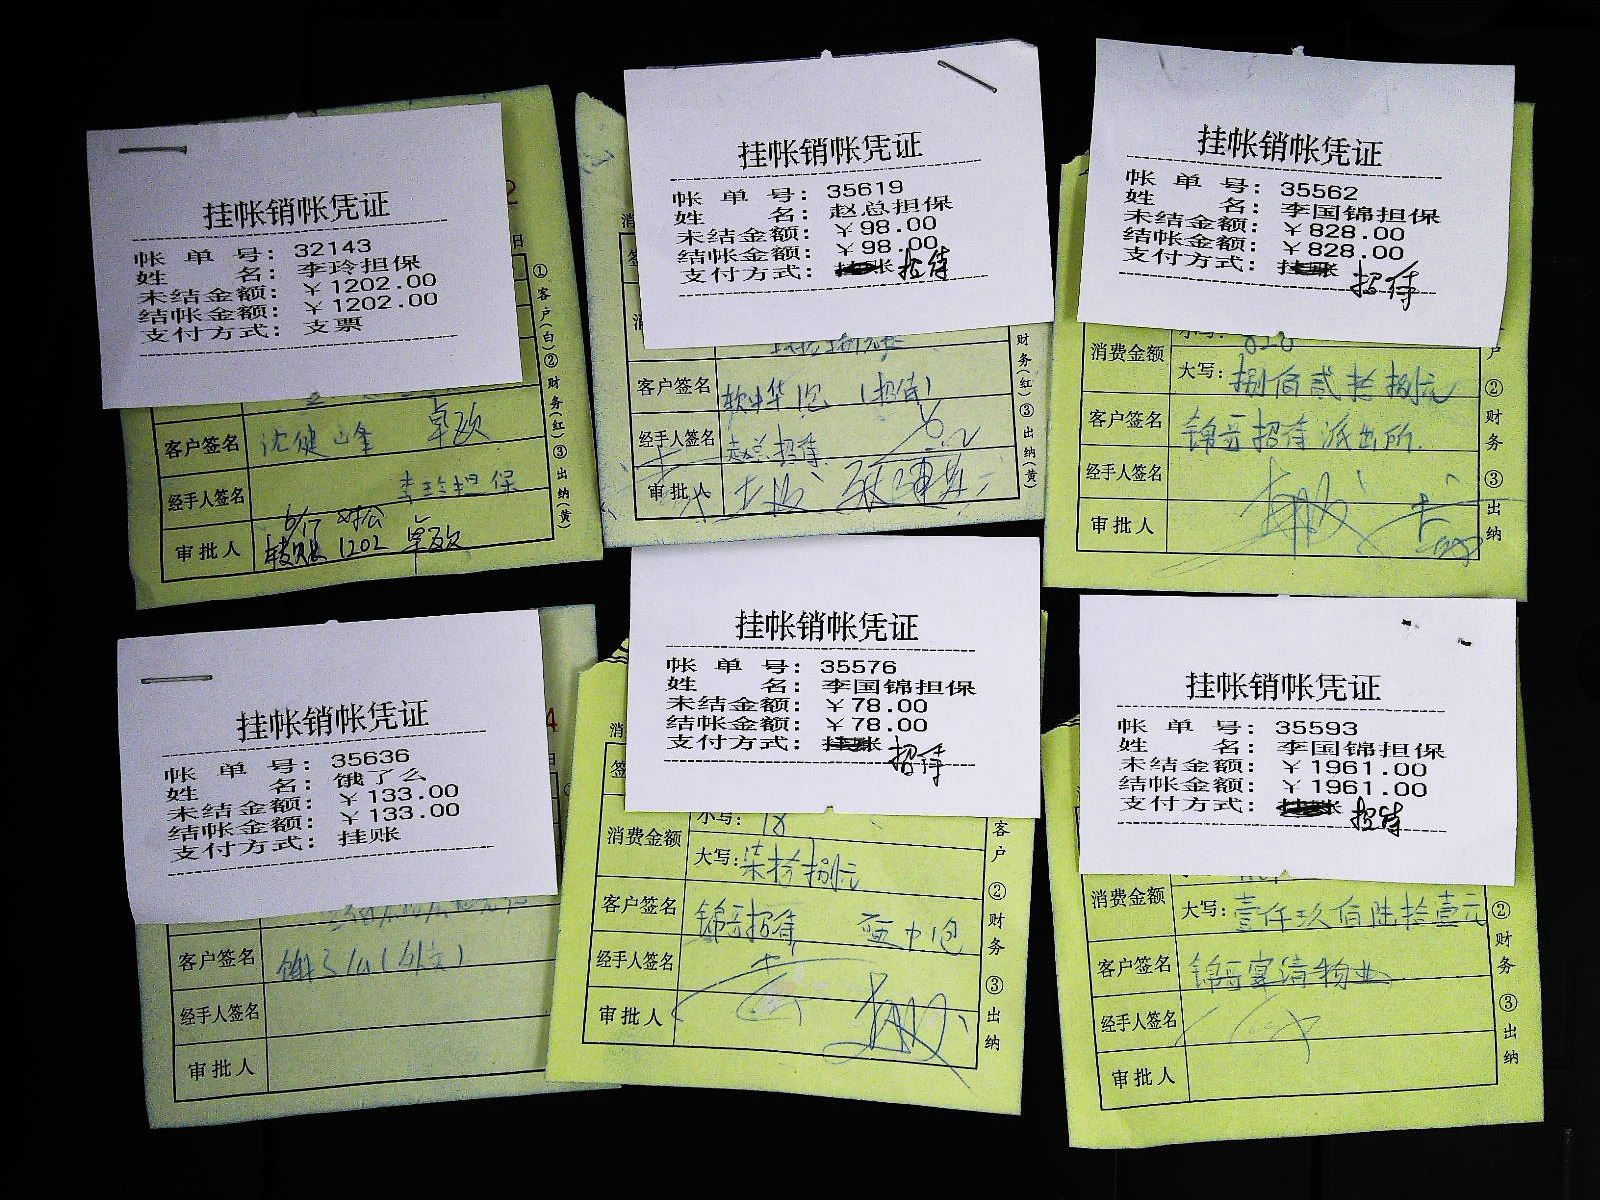 挂帐销帐凭证
帐单号：32143
姓名：李玲担保
未结金额：￥1202.00
结帐金额：￥1202.00
支付方式：支票
①客户(白)②财务(红)③出纳(黄)
客户签名 沈健峰 卓政
经手人签名 李玲担保
6/17 对公
审批人 转账1202 卓政
挂帐销帐凭证
帐单号：35619
姓名：赵总担保
未结金额：￥98.00
结帐金额：￥98.00
支付方式：挂账 招待
财务(红)③出纳(黄)
客户签名 软中华1包 (招待)
经手人签名 赵总招待
审批人
挂帐销帐凭证
帐单号：35562
姓名：李国锦担保
未结金额：￥828.00
结帐金额：￥828.00
支付方式：挂账 招待
户②财务③出纳
消费金额 小写：828
大写：捌佰贰拾捌元
客户签名 锦哥招待派出所.
经手人签名
审批人
挂帐销帐凭证
帐单号：35636
姓名：饿了么
未结金额：￥133.00
结帐金额：￥133.00
支付方式：挂账
客户签名 饿了么(外卖)
经手人签名
审批人
挂帐销帐凭证
帐单号：35576
姓名：李国锦担保
未结金额：￥78.00
结帐金额：￥78.00
支付方式：挂账 招待
客户②财务③出纳
消费金额 小写：78
大写：柒拾捌元
客户签名 锦哥招待
经手人签名
审批人
挂帐销帐凭证
帐单号：35593
姓名：李国锦担保
未结金额：￥1961.00
结帐金额：￥1961.00
支付方式：挂账 招待
②财务③出纳
消费金额
大写：壹仟玖佰陆拾壹元
客户签名 锦哥宴请物业
经手人签名
审批人